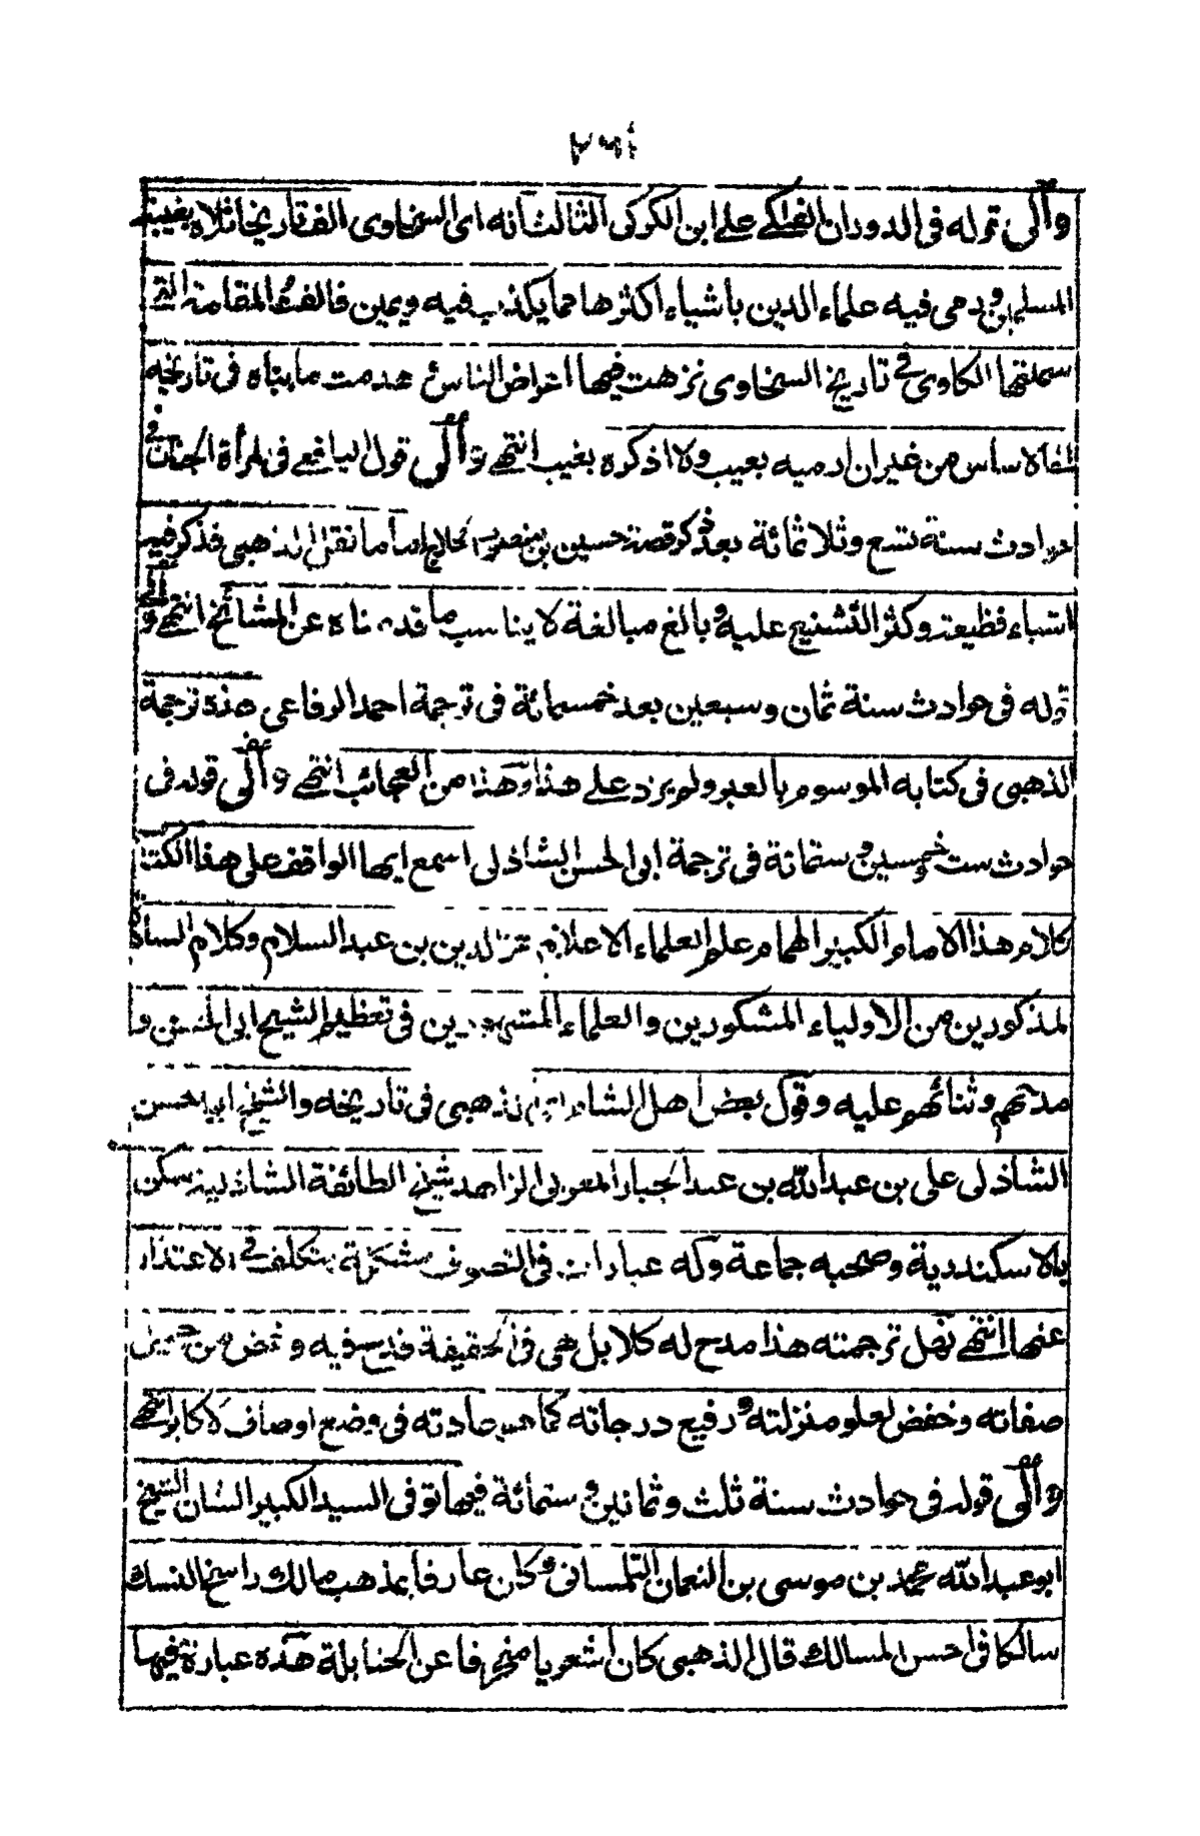 والى قوله فى الدوران الفلكى على ابن الكركى الثالث انه اى السخاوى الف تاريخا ملاه بغيبة
المسلمين ورمى فيه علماء الدين باشياء اكثرها مما يكذب فيه ويمين فالفت المقامة التى
سميتها الكاوى فى تاريخ السخاوى نزهت فيها اعراض الناس وهدمت ما بناه فى تاريخه
الاساس من غير ان ارميه بعيب ولا اذكره بغيب انتهى والى قول اليافعى فى مرأة الجنان فى
حوادث سنة تسع وثلاثمائة بعد ذكر قصة حسين بن منصور الحلاج اما ما نقل الذهبى فذكر فيه
اشياء فظيعة وكثر التشنيع عليه وبالغ مبالغة لا يناسب ما قدمناه عن المشائخ انتهى والى
قوله فى حوادث سنة ثمان وسبعين بعد خمسمائة فى ترجمة احمد الرفاعى هذه ترجمة
الذهبى فى كتابه الموسوم بالعبر ولم يزد على هذا وهذا من العجائب انتهى والى قوله فى
حوادث ست وخمسين وستمائة فى ترجمة ابى الحسن الشاذلى اسمع ايها الواقف على هذا الكتا
كلام هذا الامام الكبير الهمام علم العلماء الاعلام عز الدين بن عبد السلام وكلام السادة
المذكورين من الاولياء المشكورين والعلماء المشهورين فى تعظيم الشيخ ابى الحسن و
مدحهم وثنائهم عليه وقول بعض اهل الشام الذهبى فى تاريخه والشيخ ابو الحسن
الشاذلى على بن عبد الله بن عبد الجبار المغربى الزاهد شيخ الطائفة الشاذلية سكن
بالاسكندرية وصحبه جماعة وله عبارات فى التصوف مشكلة يتكلف فى الاعتذار
عنها انتهى فهل ترجمته هذا مدح له كلا بل هى فى الحقيقة قدح فيه وغض من جميل
صفاته وخفض لعلو منزلته ورفيع درجاته كما هى عادته فى وضع اوصاف الاكابر انتهى
والى قوله فى حوادث سنة ثلث وثمانين وستمائة فيها توفى السيد الكبير الشان الشيخ
ابو عبد الله محمد بن موسى بن النعمان التلمسانى وكان عارفا بمذهب مالك راسخ النسك
سالكا فى احسن المسالك قال الذهبى كان اشعريا منحرفا عن الحنابلة هذه عبارة فيها